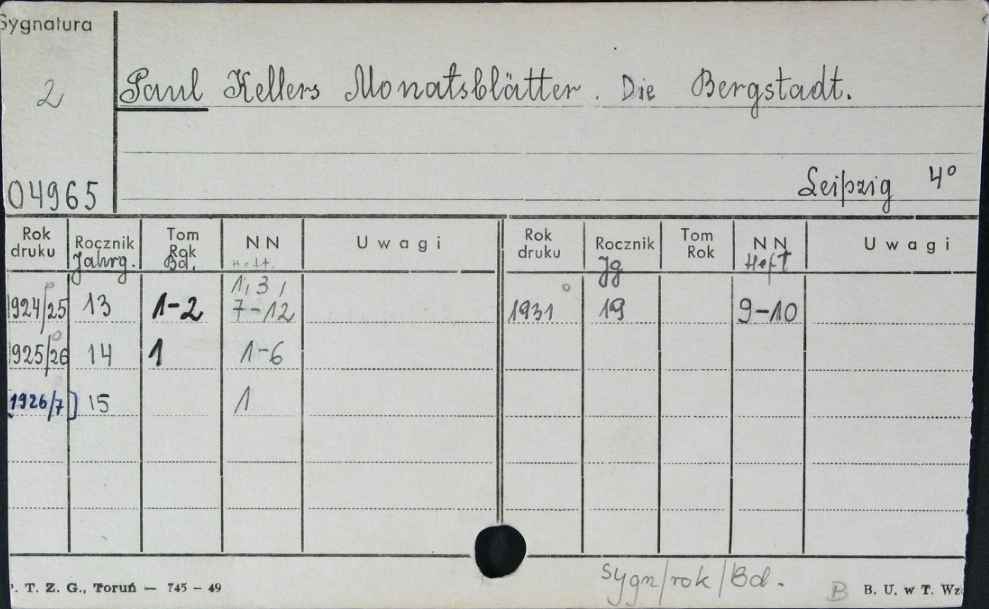 Sygnatura
2 Paul Kellers Monatsblätter. Die Bergstadt.
04965 Leipzig 4°
Rok druku Rocznik Jahrg. Tom Rok Bd. NN Heft. Uwagi Rok druku Rocznik Jg Tom Rok NN Heft Uwagi
1924/25 13 1-2 1, 3, 7-12 1931 19 9-10
1925/26 14 1 1-6
[1926/7] 15 1
Sygn/rok/Bd.
. T. Z. G., Toruń — 745 – 49 B B. U. w T. Wz